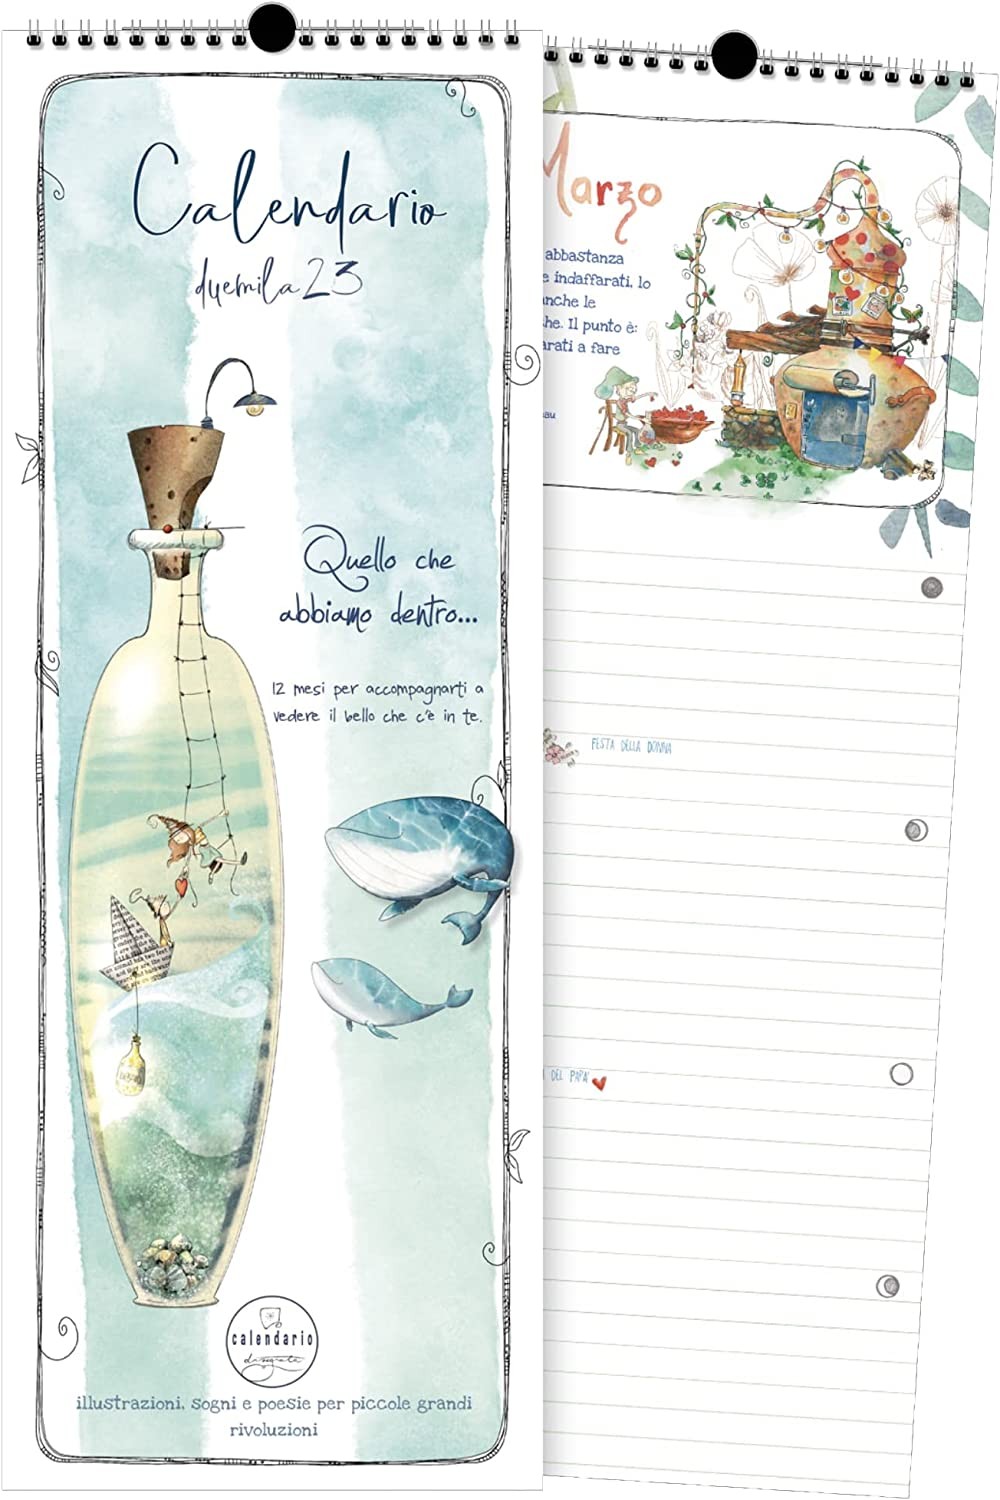 Calendario
duemila23
Quello che
abbiamo dentro...
12 mesi per accompagnarti a
vedere il bello che c'è in te.
calendario
illustrazioni, sogni e poesie per piccole grandi
rivoluzioni
Marzo
abbastanza
e indaffarati, lo
anche le
he. Il punto è:
arati a fare
au
FESTA DELLA DONNA
DEL PAPÀ